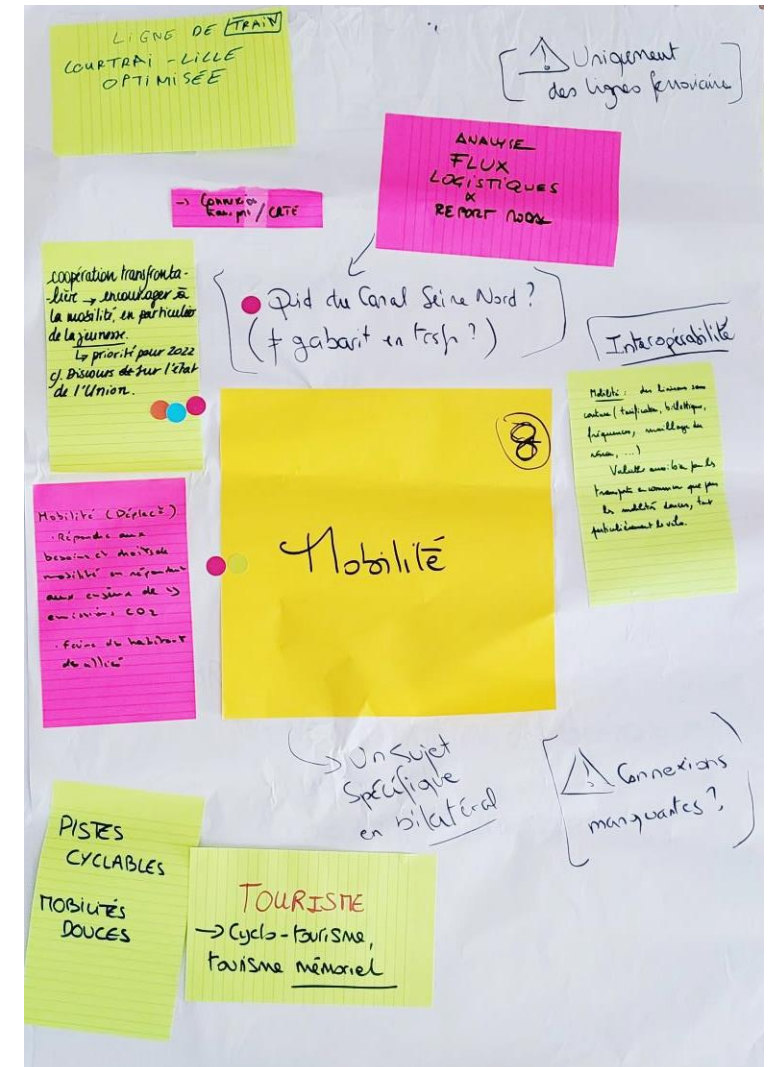 LIGNE DE TRAIN
COURTRAI - LILLE
OPTIMISÉE
⚠ Uniquement
des lignes ferroviaire
ANALYSE
FLUX
LOGISTIQUES
REPORT MODAL
→ Connexion
/ CRTE
coopération transfronta-
lière → encourager à
la mobilité, en particulier
de la jeunesse.
↳ priorité pour 2022
cf. Discours de sur l'état
de l'Union.
Quid du Canal Seine Nord ?
(≠ gabarit en tesp ?)
Interopérabilité
Mobilité : des liaisons sans
couture (tarification, billettique,
fréquences, maillage du
réseau, ...)
Valable aussi bien par les
transports en commun que par
les mobilités douces, tout
particulièrement le vélo.
8
Mobilité
Mobilité (Déplact)
· Répondre aux
besoins et droits de
mobilité en répondant
aux enjeux de
émissions CO2
· Faire des habitants
des alliés
↳ Un sujet
Spécifique
en bilatéral
⚠ Connexions
manquantes ?
PISTES
CYCLABLES
MOBILITÉS
DOUCES
TOURISME
→ Cyclo-tourisme,
tourisme mémoriel